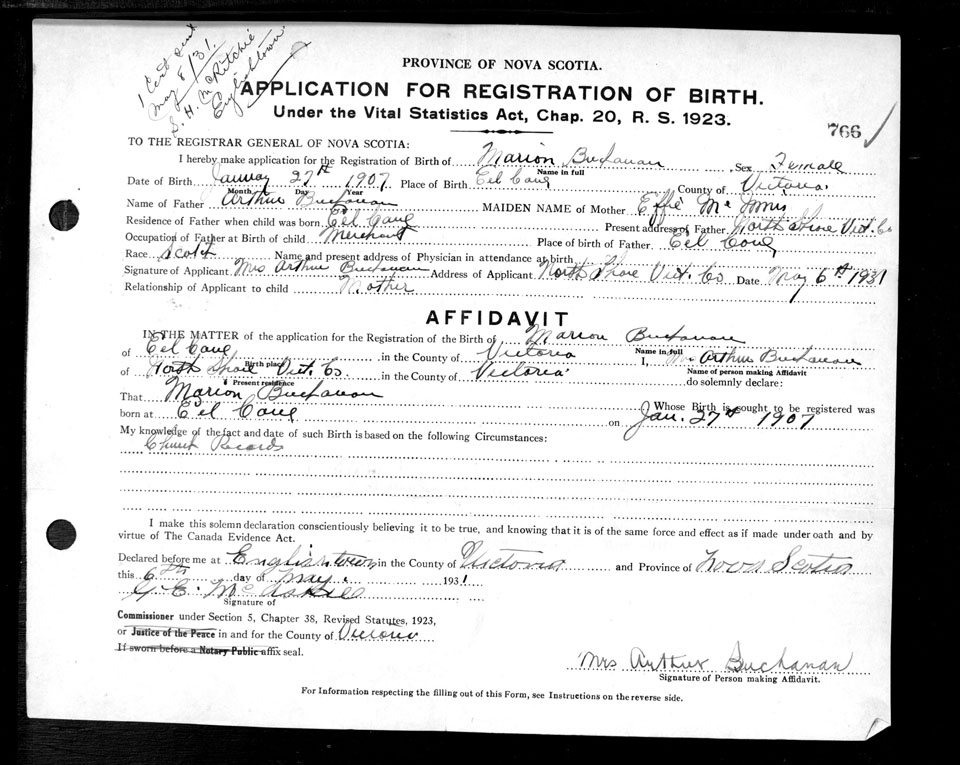 1 Cert sent
May 8/31.
S. H. McRitchie
Englishtown.
PROVINCE OF NOVA SCOTIA.
APPLICATION FOR REGISTRATION OF BIRTH.
Under the Vital Statistics Act, Chap. 20, R. S. 1923.
766
TO THE REGISTRAR GENERAL OF NOVA SCOTIA:
I hereby make application for the Registration of Birth of Marion Buchanan Sex Female
Name in full
Date of Birth January 27th 1907 Place of Birth Eel Cove County of Victoria
Month Day Year
Name of Father Arthur Buchanan MAIDEN NAME of Mother Effie McInnis
Residence of Father when child was born Eel Cove Present address of Father North Shore Vict. Co
Occupation of Father at Birth of child Merchant Place of birth of Father Eel Cove
Race Scotch Name and present address of Physician in attendance at birth
Signature of Applicant Mrs Arthur Buchanan Address of Applicant North Shore Vict. Co Date May 6th 1931
Relationship of Applicant to child Mother
AFFIDAVIT
IN THE MATTER of the application for the Registration of the Birth of Marion Buchanan
Name in full
of Eel Cove in the County of Victoria I, Mrs Arthur Buchanan
Birth place Name of person making Affidavit
of North Shore Vict. Co. in the County of Victoria do solemnly declare:
Present residence
That Marion Buchanan Whose Birth is sought to be registered was
born at Eel Cove on Jan. 27th 1907
My knowledge of the fact and date of such Birth is based on the following Circumstances:
Church Records
I make this solemn declaration conscientiously believing it to be true, and knowing that it is of the same force and effect as if made under oath and by
virtue of The Canada Evidence Act.
Declared before me at Englishtown in the County of Victoria and Province of Nova Scotia
this 6th day of May 1931
McAskill
Signature of
Commissioner under Section 5, Chapter 38, Revised Statutes, 1923,
or Justice of the Peace in and for the County of Victoria
If sworn before a Notary Public affix seal.
Mrs Arthur Buchanan
Signature of Person making Affidavit.
For Information respecting the filling out of this Form, see Instructions on the reverse side.